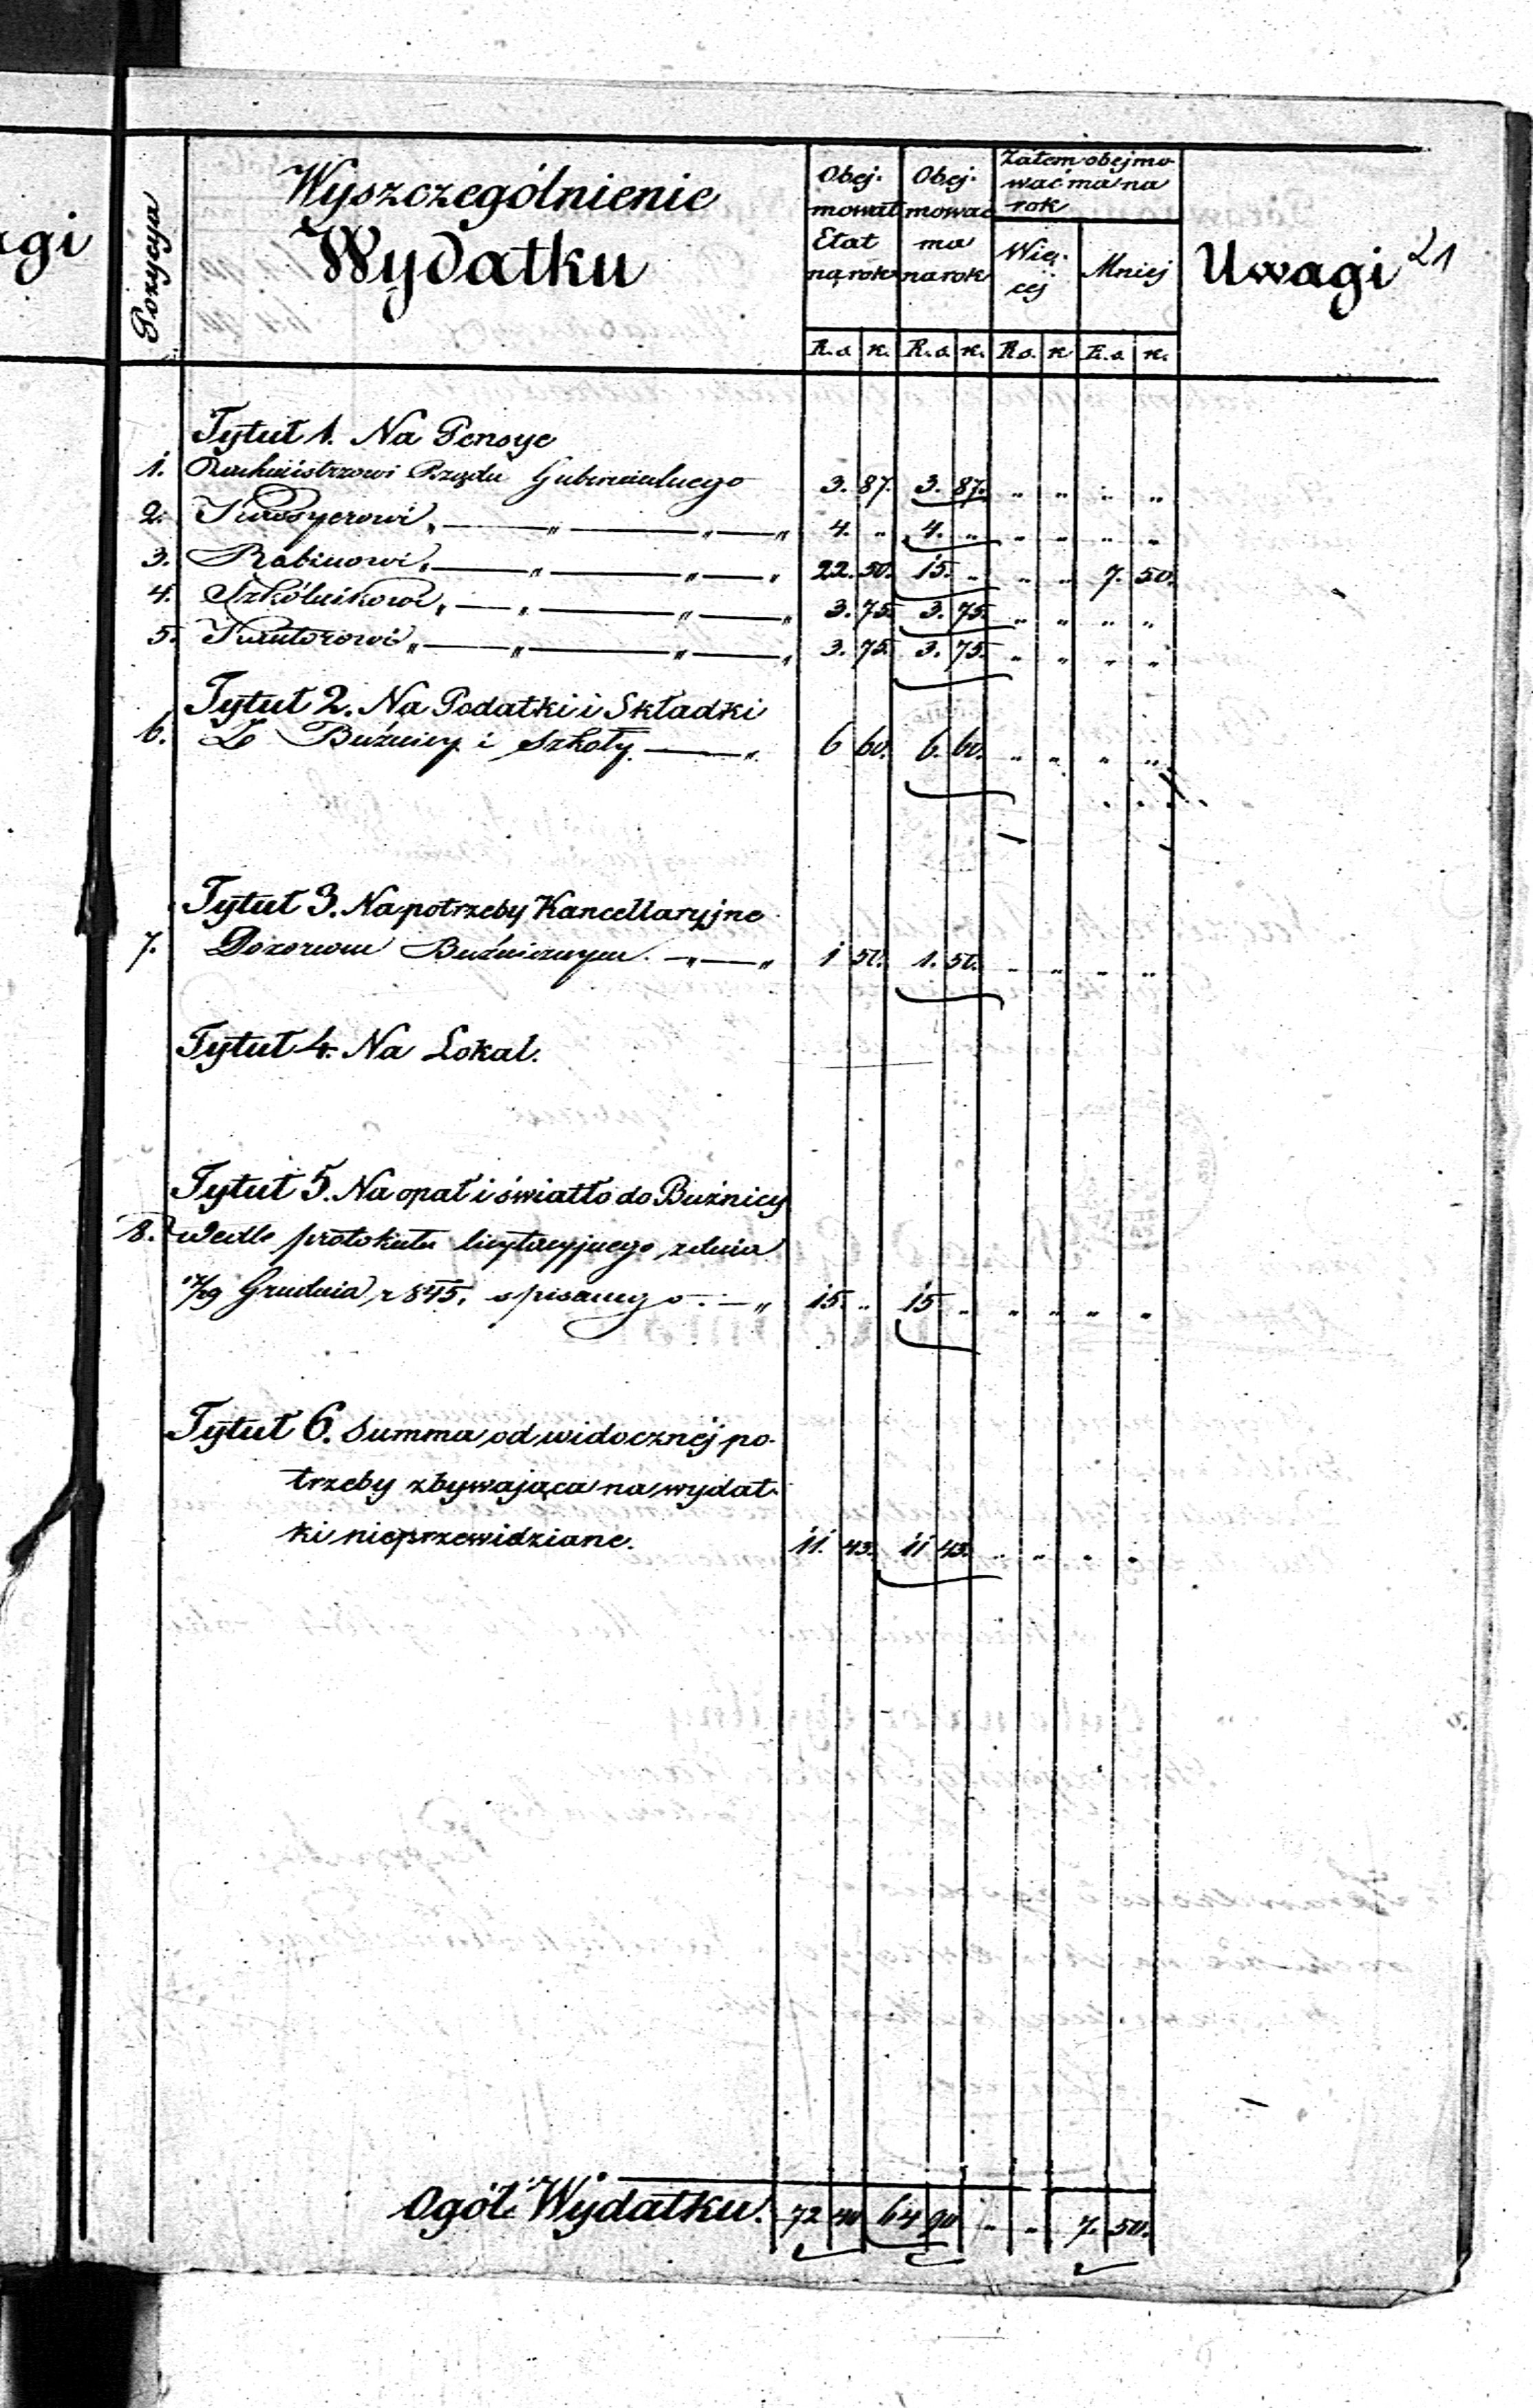 agi
Pozycya
Wyszczególnienie
Wydatku
Obej-
mował
Etat
na rok
Obej-
mować
ma
na rok
Zatem obejmo-
wać ma na
rok
Wię-
cej
Mniej
Uwagi
21
R.s. k. R.s. k. R.s. k R.s. k.
Tytuł 1. Na Pensye
1. Rachmistrzowi Rządu Gubernialnego 3. 87. 3. 87. " " " "
2. Kassyerowi " — " — " — " 4. " 4. " " " " "
3. Rabinowi " — " — " — " 22. 50. 15. " " " 7. 50.
4. Szkólnikowi " — " — " — " 3. 75. 3. 75. " " " "
5. Kantorowi " — " — " — " 3. 75. 3. 75. " " " "
Tytuł 2. Na Podatki i Składki
6. Z Bużnicy i Szkoły — " 6 60. 6. 60. " " " "
Tytuł 3. Na potrzeby Kancellaryjne
7. Dozorowi Bużniczemu — " — " 1 50. 1. 50. " " " "
Tytuł 4. Na Lokal.
Tytuł 5. Na opał i światło do Bużnicy
8. Wedle protokułu licytacyjnego z dnia
17/29 Grudnia r 845. spisanego — " 15. " 15 " " " " "
Tytuł 6. Summa od widocznej po-
trzeby zbywająca na wydat-
ki nieprzewidziane. 11. 43. 11 43. " " " "
Ogół Wydatku. 72 40 64 90 " " 7. 50.